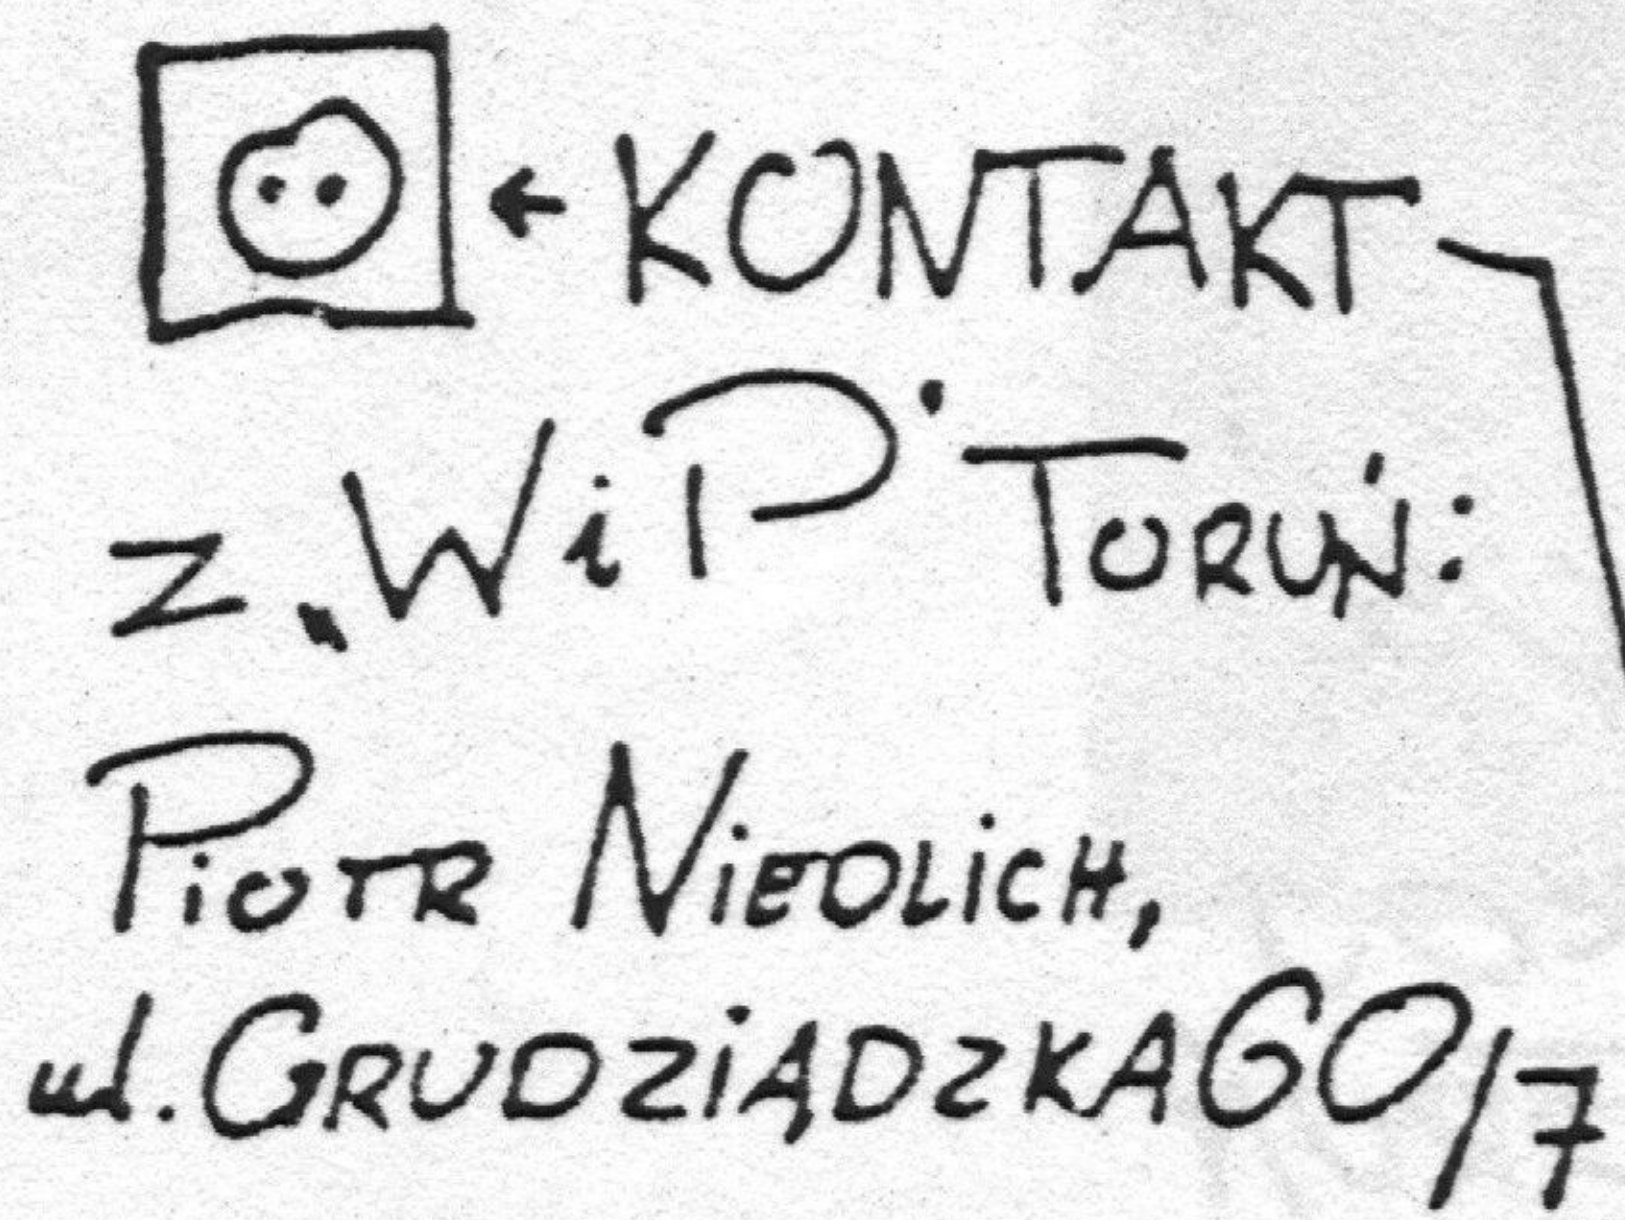 ← KONTAKT
z „WiP" TORUŃ:
PIOTR NIEDLICH,
ul. GRUDZIĄDZKA 60/7